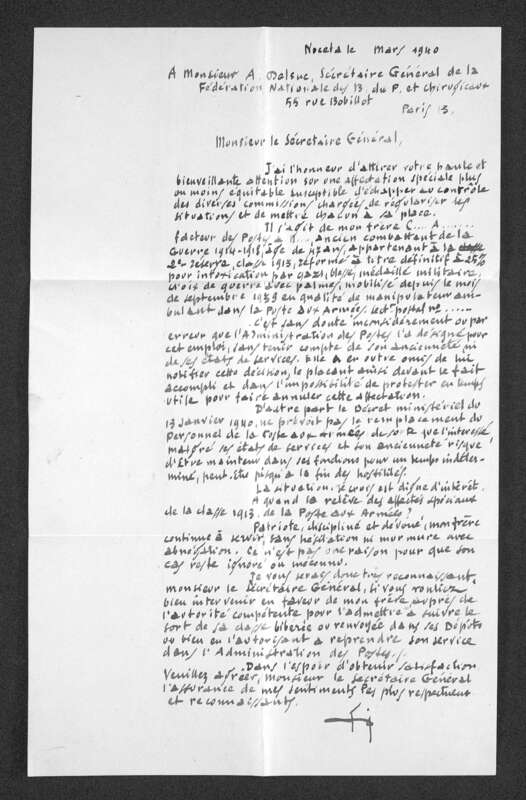 Noceta le Mars 1940
A Monsieur A. Delsuc, Secrétaire Général de la
Fédération Nationale des B. du P. et Chirugicaux
55 rue Bobillot
Paris 13.
Monsieur le Sécretaire Général,
J'ai l'honneur d'attirer votre haute et
bienveillante attention sur une affectation spéciale plus
ou moins équitable susceptible d'échapper au contrôle
des diverses commissions chargées de régulariser les
situations et de mettre chacun à sa place.
Il s'agit de mon frère C.... A.......
facteur des Postes à R..., ancien combattant de la
Guerre 1914-1918, âgé de 47 ans, appartenant à la
2e réserve, classe 1913, réformé à titre définitif à 25%
pour intoxication par gaz, blessé, médaille militaire,
croix de guerre avec palme, mobilisé depuis le mois
de septembre 1939 en qualité de manipulateur am-
bulant dans la Poste aux Armées. Sect. postal no......
C'est sans doute inconsidérément ou par
erreur que l'Administration des Postes l'a désigné pour
cet emploi, sans tenir compte de son ancienneté ni
de ses états de services. Elle a en outre omis de lui
notifier cette décision, le plaçant ainsi devant le fait
accompli et dans l'impossibilité de protester en temps
utile pour faire annuler cette affectation.
D'autre part le Décret ministériel du
13 Janvier 1940, ne prévoit pas le remplacement du
Personnel de la Poste aux Armées de sorte que l'intéressé,
malgré ses états de services et son ancienneté risque
d'être maintenu dans ses fonctions pour un temps indéter-
miné, peut-être jusqu'à la fin des hostilités.
La situation, je crois est digne d'intérêt.
A quand la relève des affectés spéciaux
de la classe 1913, de la Poste aux Armées?
Patriote, discipliné et dévoué, mon frère
continue à servir, sans hésitation ni murmure avec
abnégation. Ce n'est pas une raison pour que son
cas reste ignoré ou méconnu.
Je vous serais donc très reconnaissant,
monsieur le Secrétaire Général, si vous vouliez
bien intervenir en faveur de mon frère auprès de
l'autorité compétente pour l'admettre à suivre le
sort de sa classe libérée ou renvoyée dans ses Dépôts
ou bien en l'autorisant à reprendre son service
dans l'Administration des Postes...
Dans l'espoir d'obtenir satisfaction
Veuillez agréer, monsieur le Secrétaire Général
l'assurance de mes sentiments les plus respectueux
et reconnaissants.